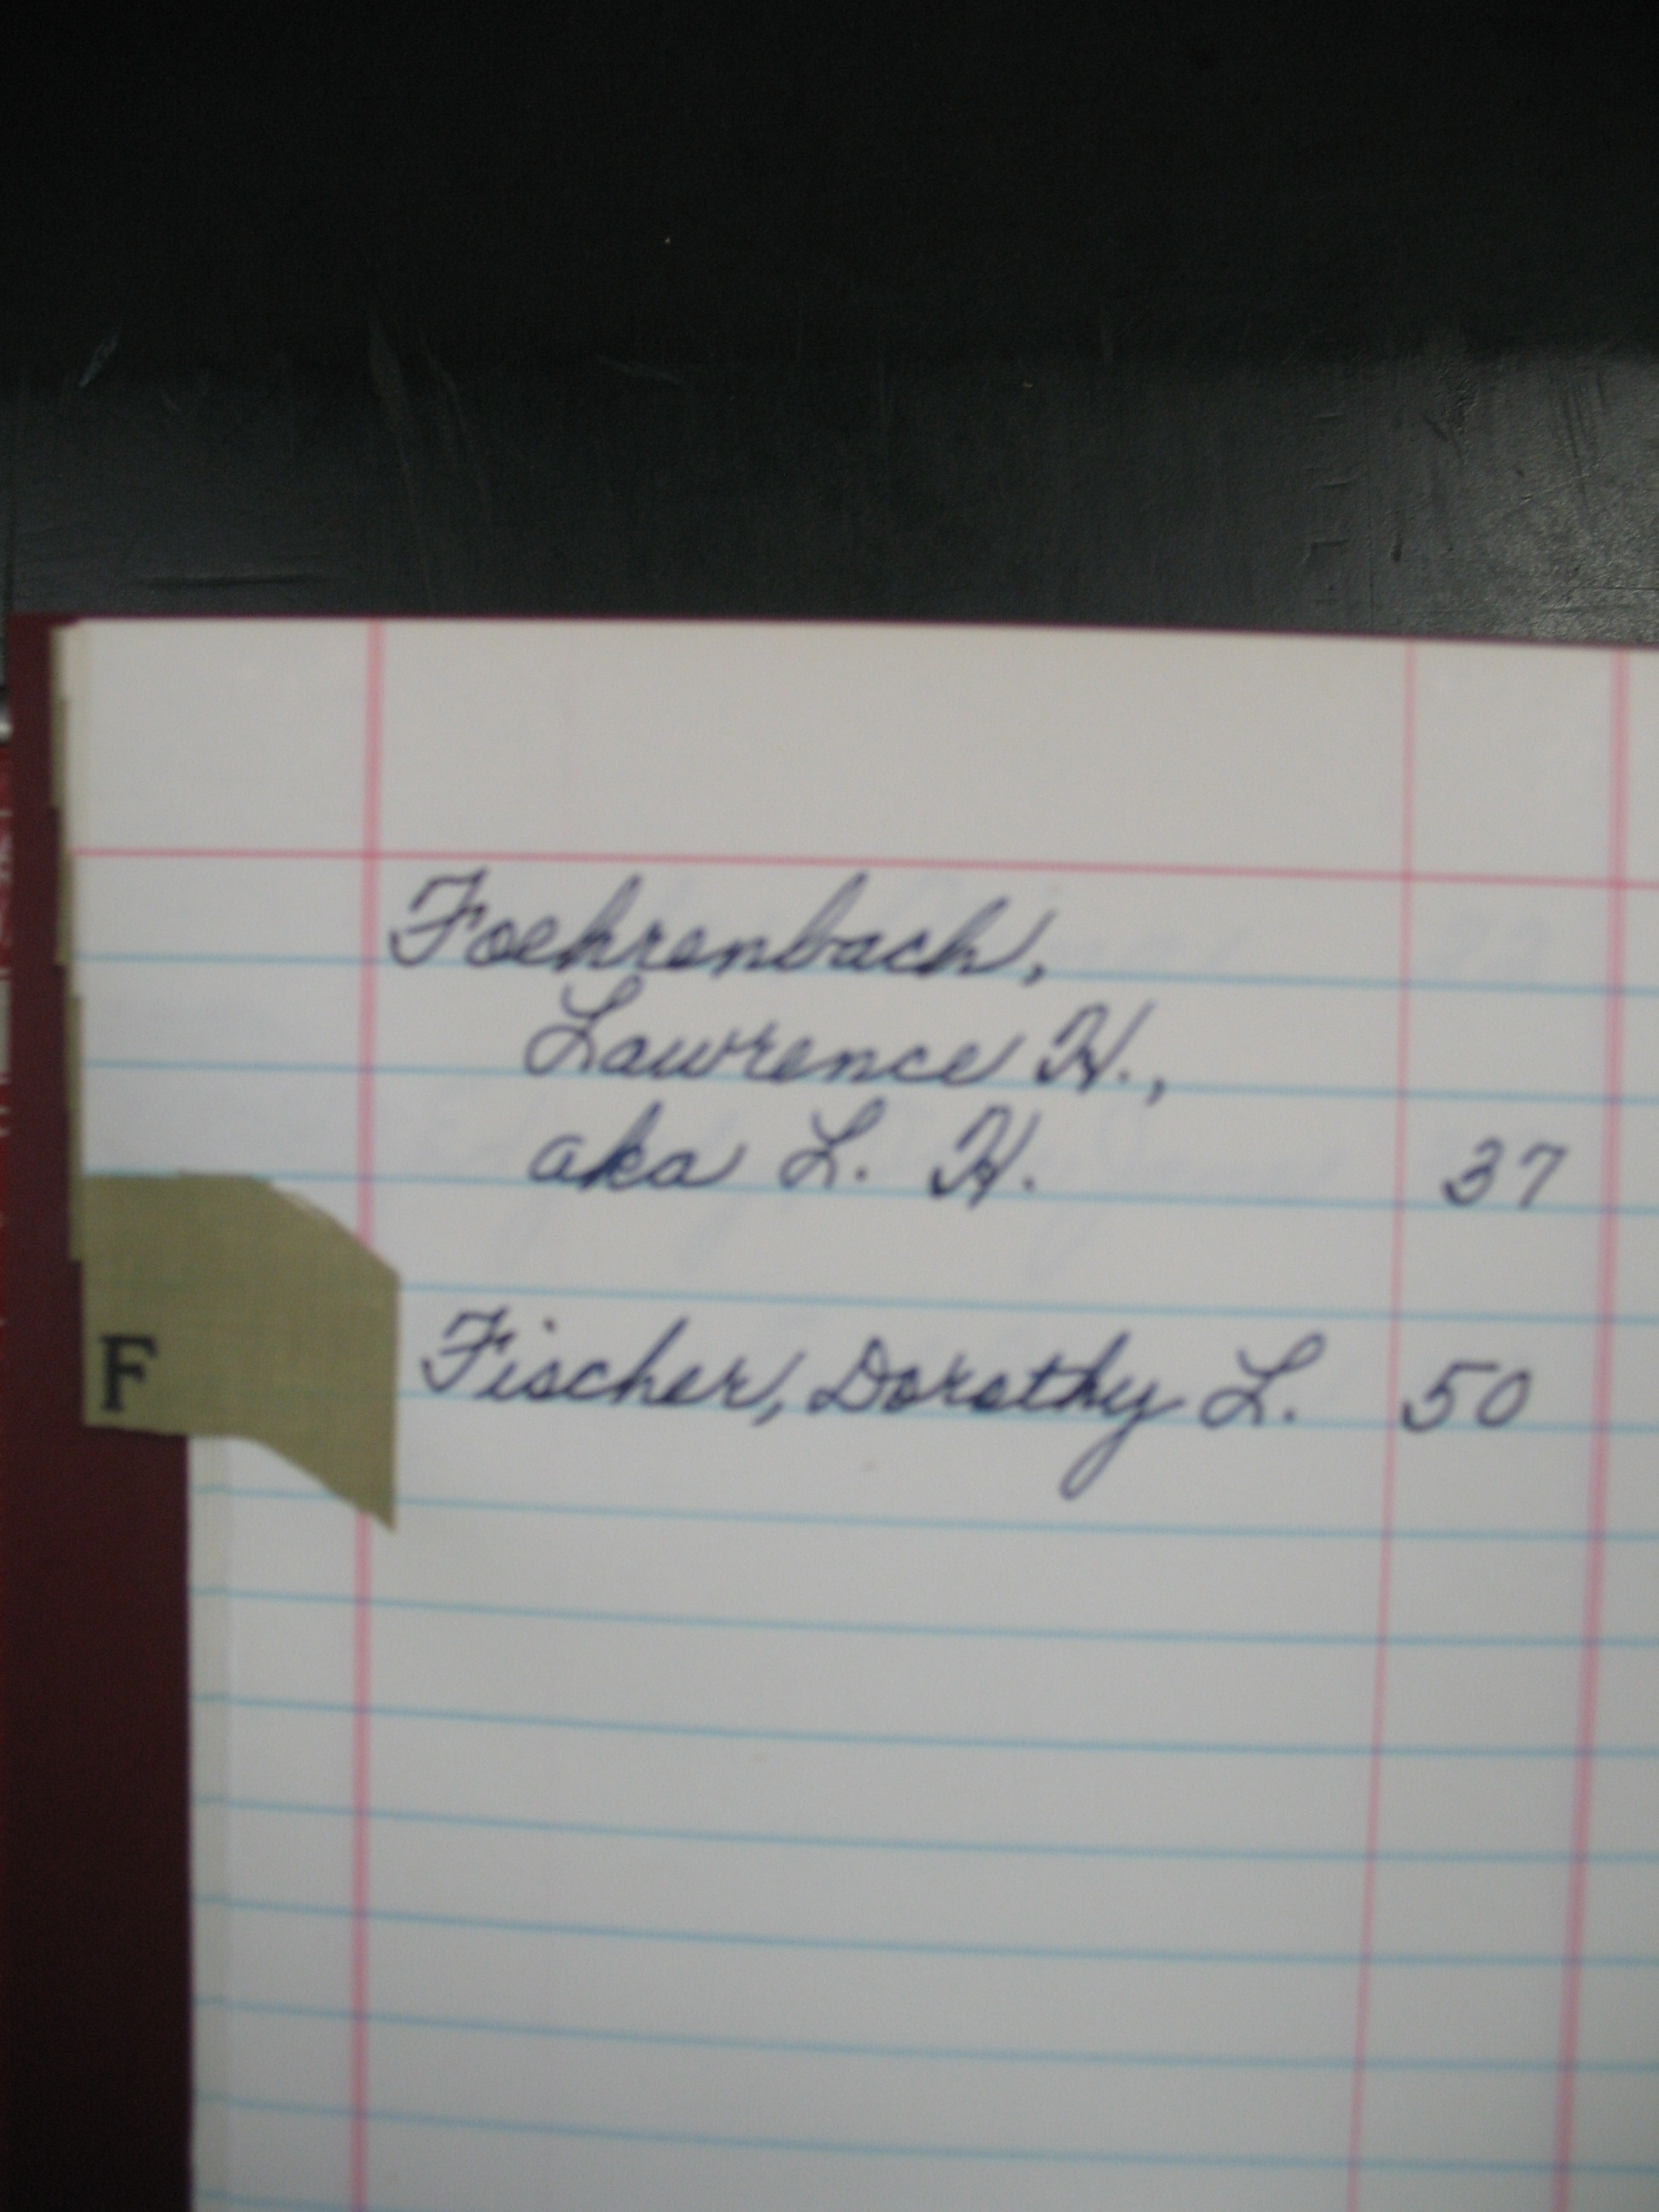 Foehrenbach,
Lawrence H.,
aka L. H. 37
F
Fischer, Dorothy L. 50